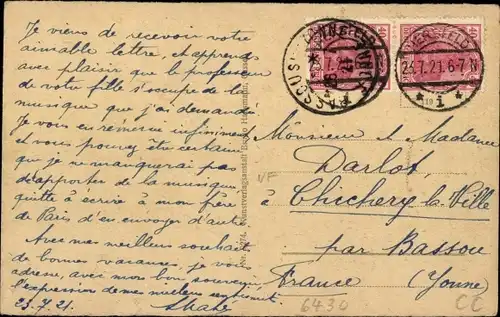 Je viens de recevoir votre
aimable lettre, et apprends
avec plaisir que le professeur
de votre fille s'occupe de la
musique que j'ai demandé
Je vous en remercie infiniment
et vous pouvez être certaine
que je ne manquerai pas
d'apporter de la musique,
quitte à écrire à mon frère
de Paris d'en envoyer d'autre
Avec mes meilleurs souhaits
de bonnes vacances, je vous
adresse, avec mon bon souvenir,
l'expression de mes meilleurs sentiments
23.7.21.
Kunstverlagsanstalt Bruno
VF
7.21.6-7 N
Monsieur et Madame
Darlot,
à Chichery la Ville
par Bassou
France (Yonne)
6430
CC